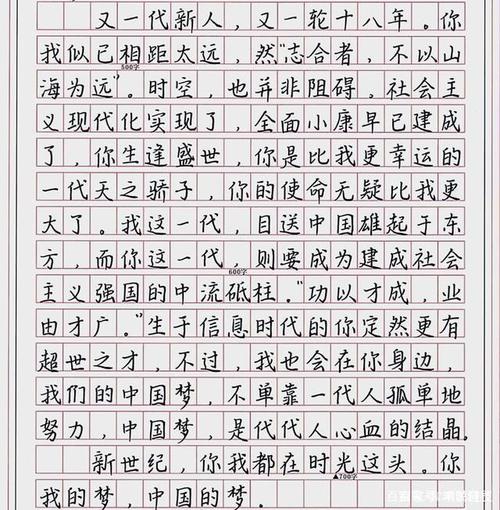 又一代新人，又一轮十八年。你
我似已相距太远，然“志合者，不以山
500字
海为远”。时空，也并非阻碍，社会主
义现代化实现了，全面小康早已建成
了，你生逢盛世，你是比我更幸运的
一代天之骄子，你的使命无疑比我更
大了。我这一代，目送中国雄起于东
方，而你这一代，则要成为建成社会
600字
主义强国的中流砥柱。“功以才成，业
由才广。”生于信息时代的你定然更有
超世之才，不过，我也会在你身边，
我们的中国梦，不单靠一代人孤单地
努力，中国梦，是代代人心血的结晶。
新世纪，你我都在时光这头。你
▲700字
我的梦，中国的梦。